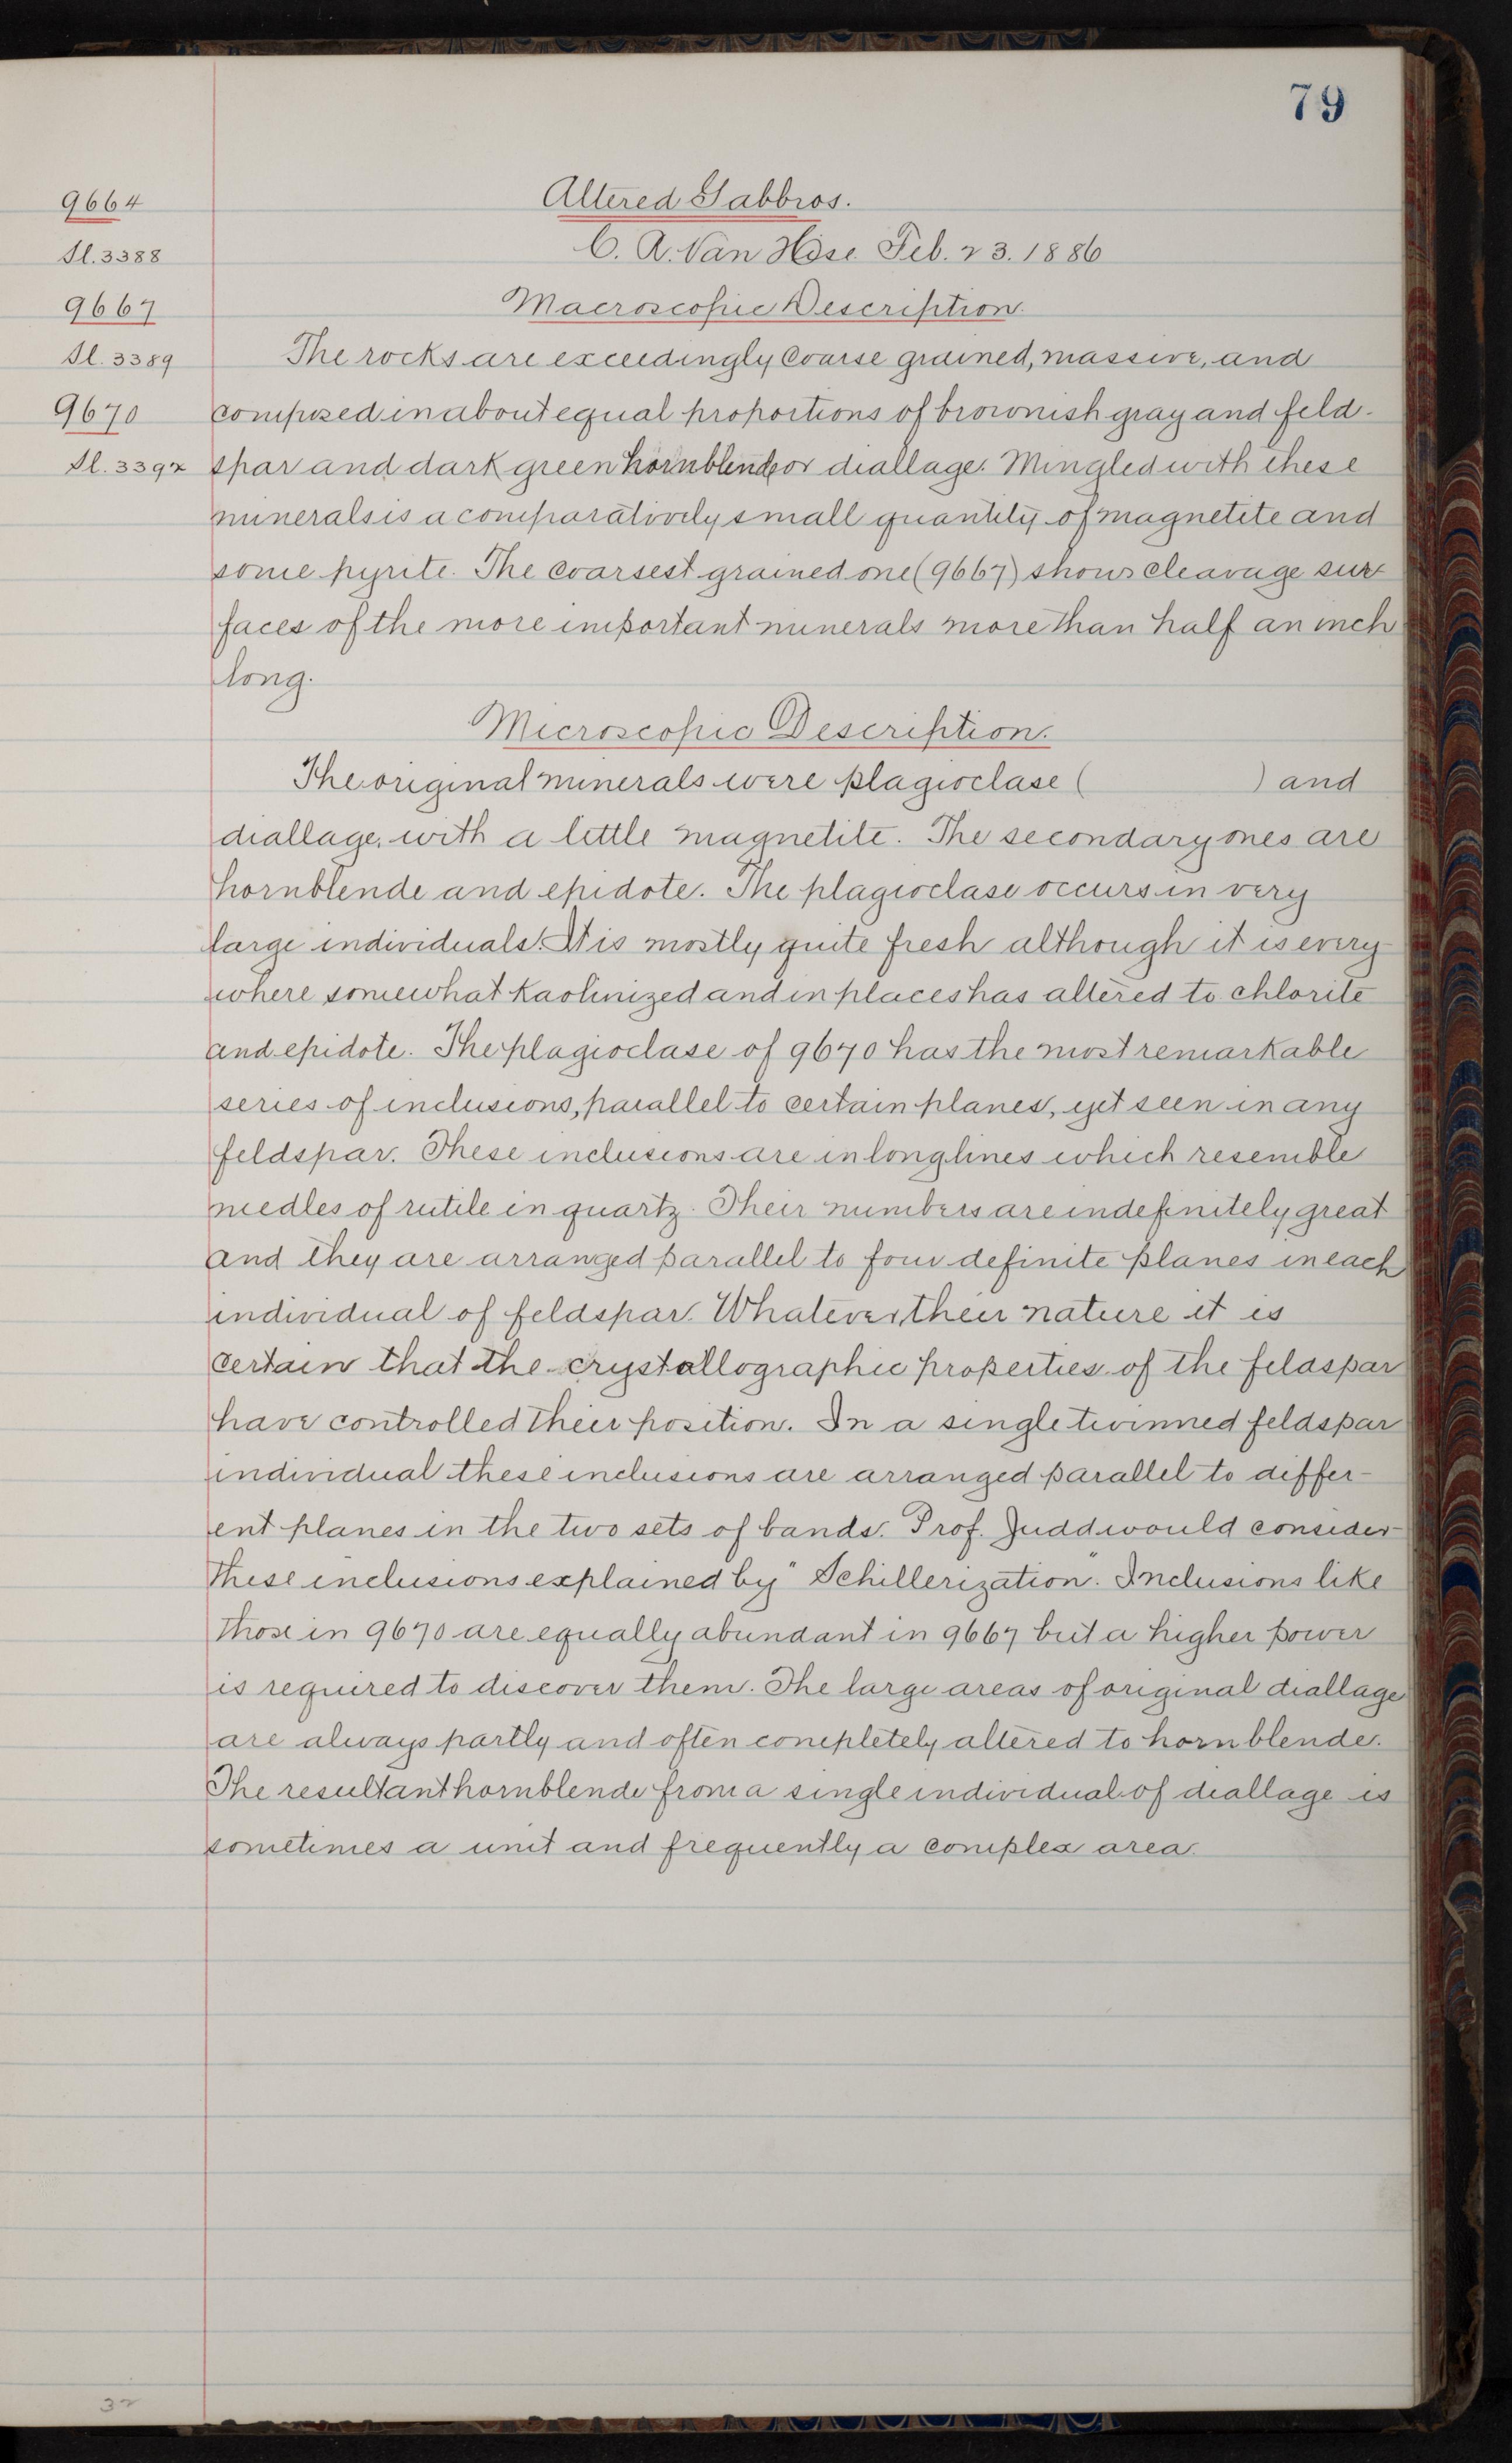 79
9664 Altered Gabbros.
Sl. 3388 C. R. Van Hise Feb. 23. 1886
9667 Macroscopic Description.
Sl. 3389 The rocks are exceedingly coarse grained, massive, and
9670 composed in about equal proportions of brownish gray and feld-
Sl. 3392 spar and dark green hornblende or diallage. Mingled with these
minerals is a comparatively small quantity of magnetite and
some pyrite. The coarsest grained one (9667) shows cleavage sur-
faces of the more important minerals more than half an inch
long.
Microscopic Description.
The original minerals were plagioclase ( ) and
diallage, with a little magnetite. The secondary ones are
hornblende and epidote. The plagioclase occurs in very
large individuals. It is mostly quite fresh although it is every-
where somewhat kaolinized and in places has altered to chlorite
and epidote. The plagioclase of 9670 has the most remarkable
series of inclusions, parallel to certain planes, yet seen in any
feldspar. These inclusions are in long lines which resemble
needles of rutile in quartz. Their numbers are indefinitely great
and they are arranged parallel to four definite planes in each
individual of feldspar. Whatever their nature it is
certain that the crystallographic properties of the feldspar
have controlled their position. In a single twinned feldspar
individual these inclusions are arranged parallel to differ-
ent planes in the two sets of bands. Prof. Judd would consider
these inclusions explained by "Schillerization". Inclusions like
those in 9670 are equally abundant in 9667 but a higher power
is required to discover them. The large areas of original diallage
are always partly and often completely altered to hornblende.
The resultant hornblende from a single individual of diallage is
sometimes a unit and frequently a complex area.
32